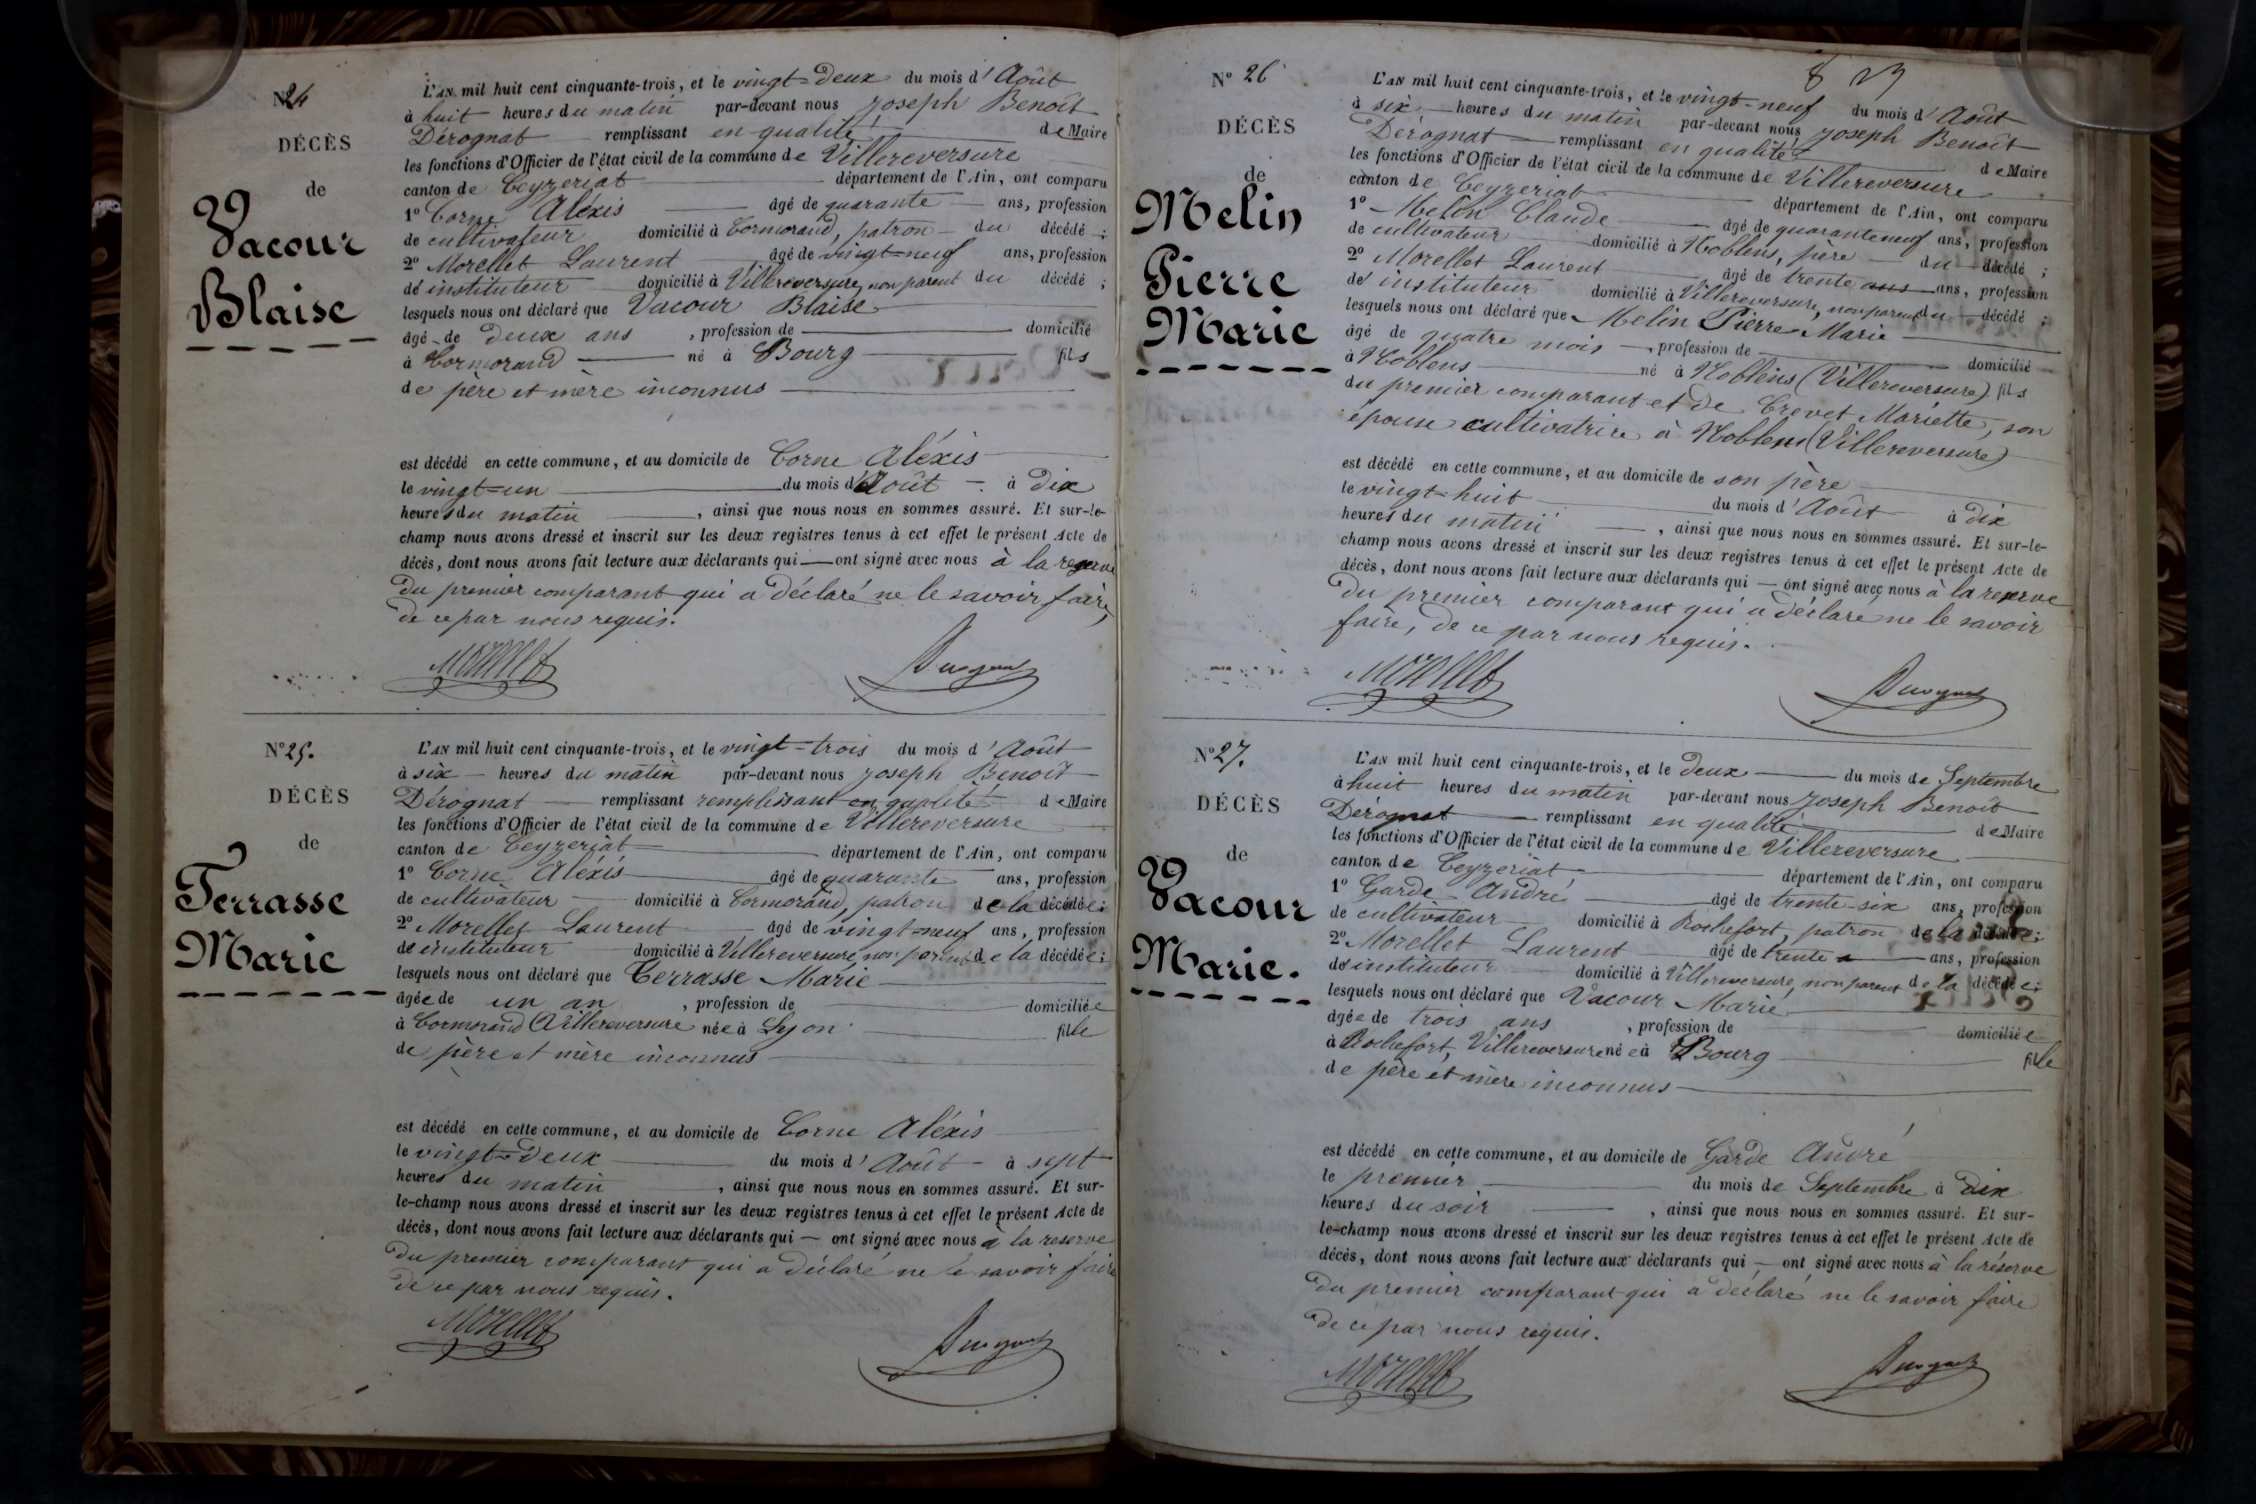 N° 24
DÉCÈS
de
Vacour
Blaise
L'AN mil huit cent cinquante-trois, et le vingt-deux du mois d'Août
à huit heures du matin par-devant nous Joseph Benoît
Dérognat remplissant en qualité de Maire
les fonctions d'Officier de l'état civil de la commune de Villereversure
canton de Ceyzeriat département de l'Ain, ont comparu
1° Corne Aléxis âgé de quarante ans, profession
de cultivateur domicilié à Cormorand, patron du décédé ;
2° Morellet Laurent âgé de vingt-neuf ans, profession
de instituteur domicilié à Villereversure, non parent du décédé ;
lesquels nous ont déclaré que Vacour Blaise
âgé de deux ans , profession de domicilié
à Cormorand né à Bourg fils
de père et mère inconnus
est décédé en cette commune, et au domicile de Corne Aléxis
le vingt-un du mois d'Août à dix
heures du matin , ainsi que nous nous en sommes assuré. Et sur-le-
champ nous avons dressé et inscrit sur les deux registres tenus à cet effet le présent Acte de
décès, dont nous avons fait lecture aux déclarants qui ont signé avec nous à la reserve
du premier comparant qui a déclaré ne le savoir faire,
de ce par nous requis.
Morellet Derognat
N° 25.
DÉCÈS
de
Terrasse
Marie
L'AN mil huit cent cinquante-trois, et le vingt-trois du mois d'Août
à six heures du matin par-devant nous Joseph Benoît
Dérognat remplissant remplissant en qualité de Maire
les fonctions d'Officier de l'état civil de la commune de Villereversure
canton de Ceyzeriat département de l'Ain, ont comparu
1° Corne Aléxis âgé de quarante ans, profession
de cultivateur domicilié à Cormorand, patron de la décédée ;
2° Morellet Laurent âgé de vingt-neuf ans, profession
de instituteur domicilié à Villereversure, non parent de la décédée ;
lesquels nous ont déclaré que Terrasse Marie
âgée de un an , profession de domiciliée
à Cormorand Villereversure née à Lyon fille
de père et mère inconnus
est décédé en cette commune, et au domicile de Corne Aléxis
le vingt-deux du mois d'Août à sept
heures du matin , ainsi que nous nous en sommes assuré. Et sur-
le-champ nous avons dressé et inscrit sur les deux registres tenus à cet effet le présent Acte de
décès, dont nous avons fait lecture aux déclarants qui ont signé avec nous à la reserve
du premier comparant qui a déclaré ne le savoir faire
de ce par nous requis.
Morellet Derognat
N° 26
DÉCÈS
de
Melin
Pierre
Marie
L'AN mil huit cent cinquante-trois, et le vingt-neuf du mois d'Août
à six heures du matin par-devant nous Joseph Benoît
Dérognat remplissant en qualité de Maire
les fonctions d'Officier de l'état civil de la commune de Villereversure
canton de Ceyzeriat département de l'Ain, ont comparu
1° Melin Claude âgé de quarante neuf ans, profession
de cultivateur domicilié à Noblens, père du décédé ;
2° Morellet Laurent âgé de trente ans ans, profession
de instituteur domicilié à Villereversure, non parent du décédé ;
lesquels nous ont déclaré que Melin Pierre Marie
âgé de quatre mois , profession de domicilié
à Noblens né à Noblens (Villereversure) fils
du premier comparant et de Crevet Mariette, son
épouse cultivatrice à Noblens (Villereversure)
est décédé en cette commune, et au domicile de son père
le vingt-huit du mois d'Août à dix
heures du matin , ainsi que nous nous en sommes assuré. Et sur-le-
champ nous avons dressé et inscrit sur les deux registres tenus à cet effet le présent Acte de
décès, dont nous avons fait lecture aux déclarants qui ont signé avec nous à la reserve
du premier comparant qui a déclaré ne le savoir
faire, de ce par nous requis.
Morellet Derognat
N° 27.
DÉCÈS
de
Vacour
Marie.
L'AN mil huit cent cinquante-trois, et le deux du mois de Septembre
à huit heures du matin par-devant nous Joseph Benoît
Dérognat remplissant en qualité de Maire
les fonctions d'Officier de l'état civil de la commune de Villereversure
canton de Ceyzeriat département de l'Ain, ont comparu
1° Garde André âgé de trente-six ans, profession
de cultivateur domicilié à Rochefort, patron de la décédée ;
2° Morellet Laurent âgé de trente ans, profession
de instituteur domicilié à Villereversure, non parent de la décédée ;
lesquels nous ont déclaré que Vacour Marie
âgée de trois ans , profession de domiciliée
à Rochefort, Villereversure née à Bourg fille
de père et mère inconnus
est décédé en cette commune, et au domicile de Garde André
le premier du mois de Septembre à dix
heures du soir , ainsi que nous nous en sommes assuré. Et sur-
le-champ nous avons dressé et inscrit sur les deux registres tenus à cet effet le présent Acte de
décès, dont nous avons fait lecture aux déclarants qui ont signé avec nous à la réserve
du premier comparant qui a déclaré ne le savoir faire
de ce par nous requis.
Morellet Derognat